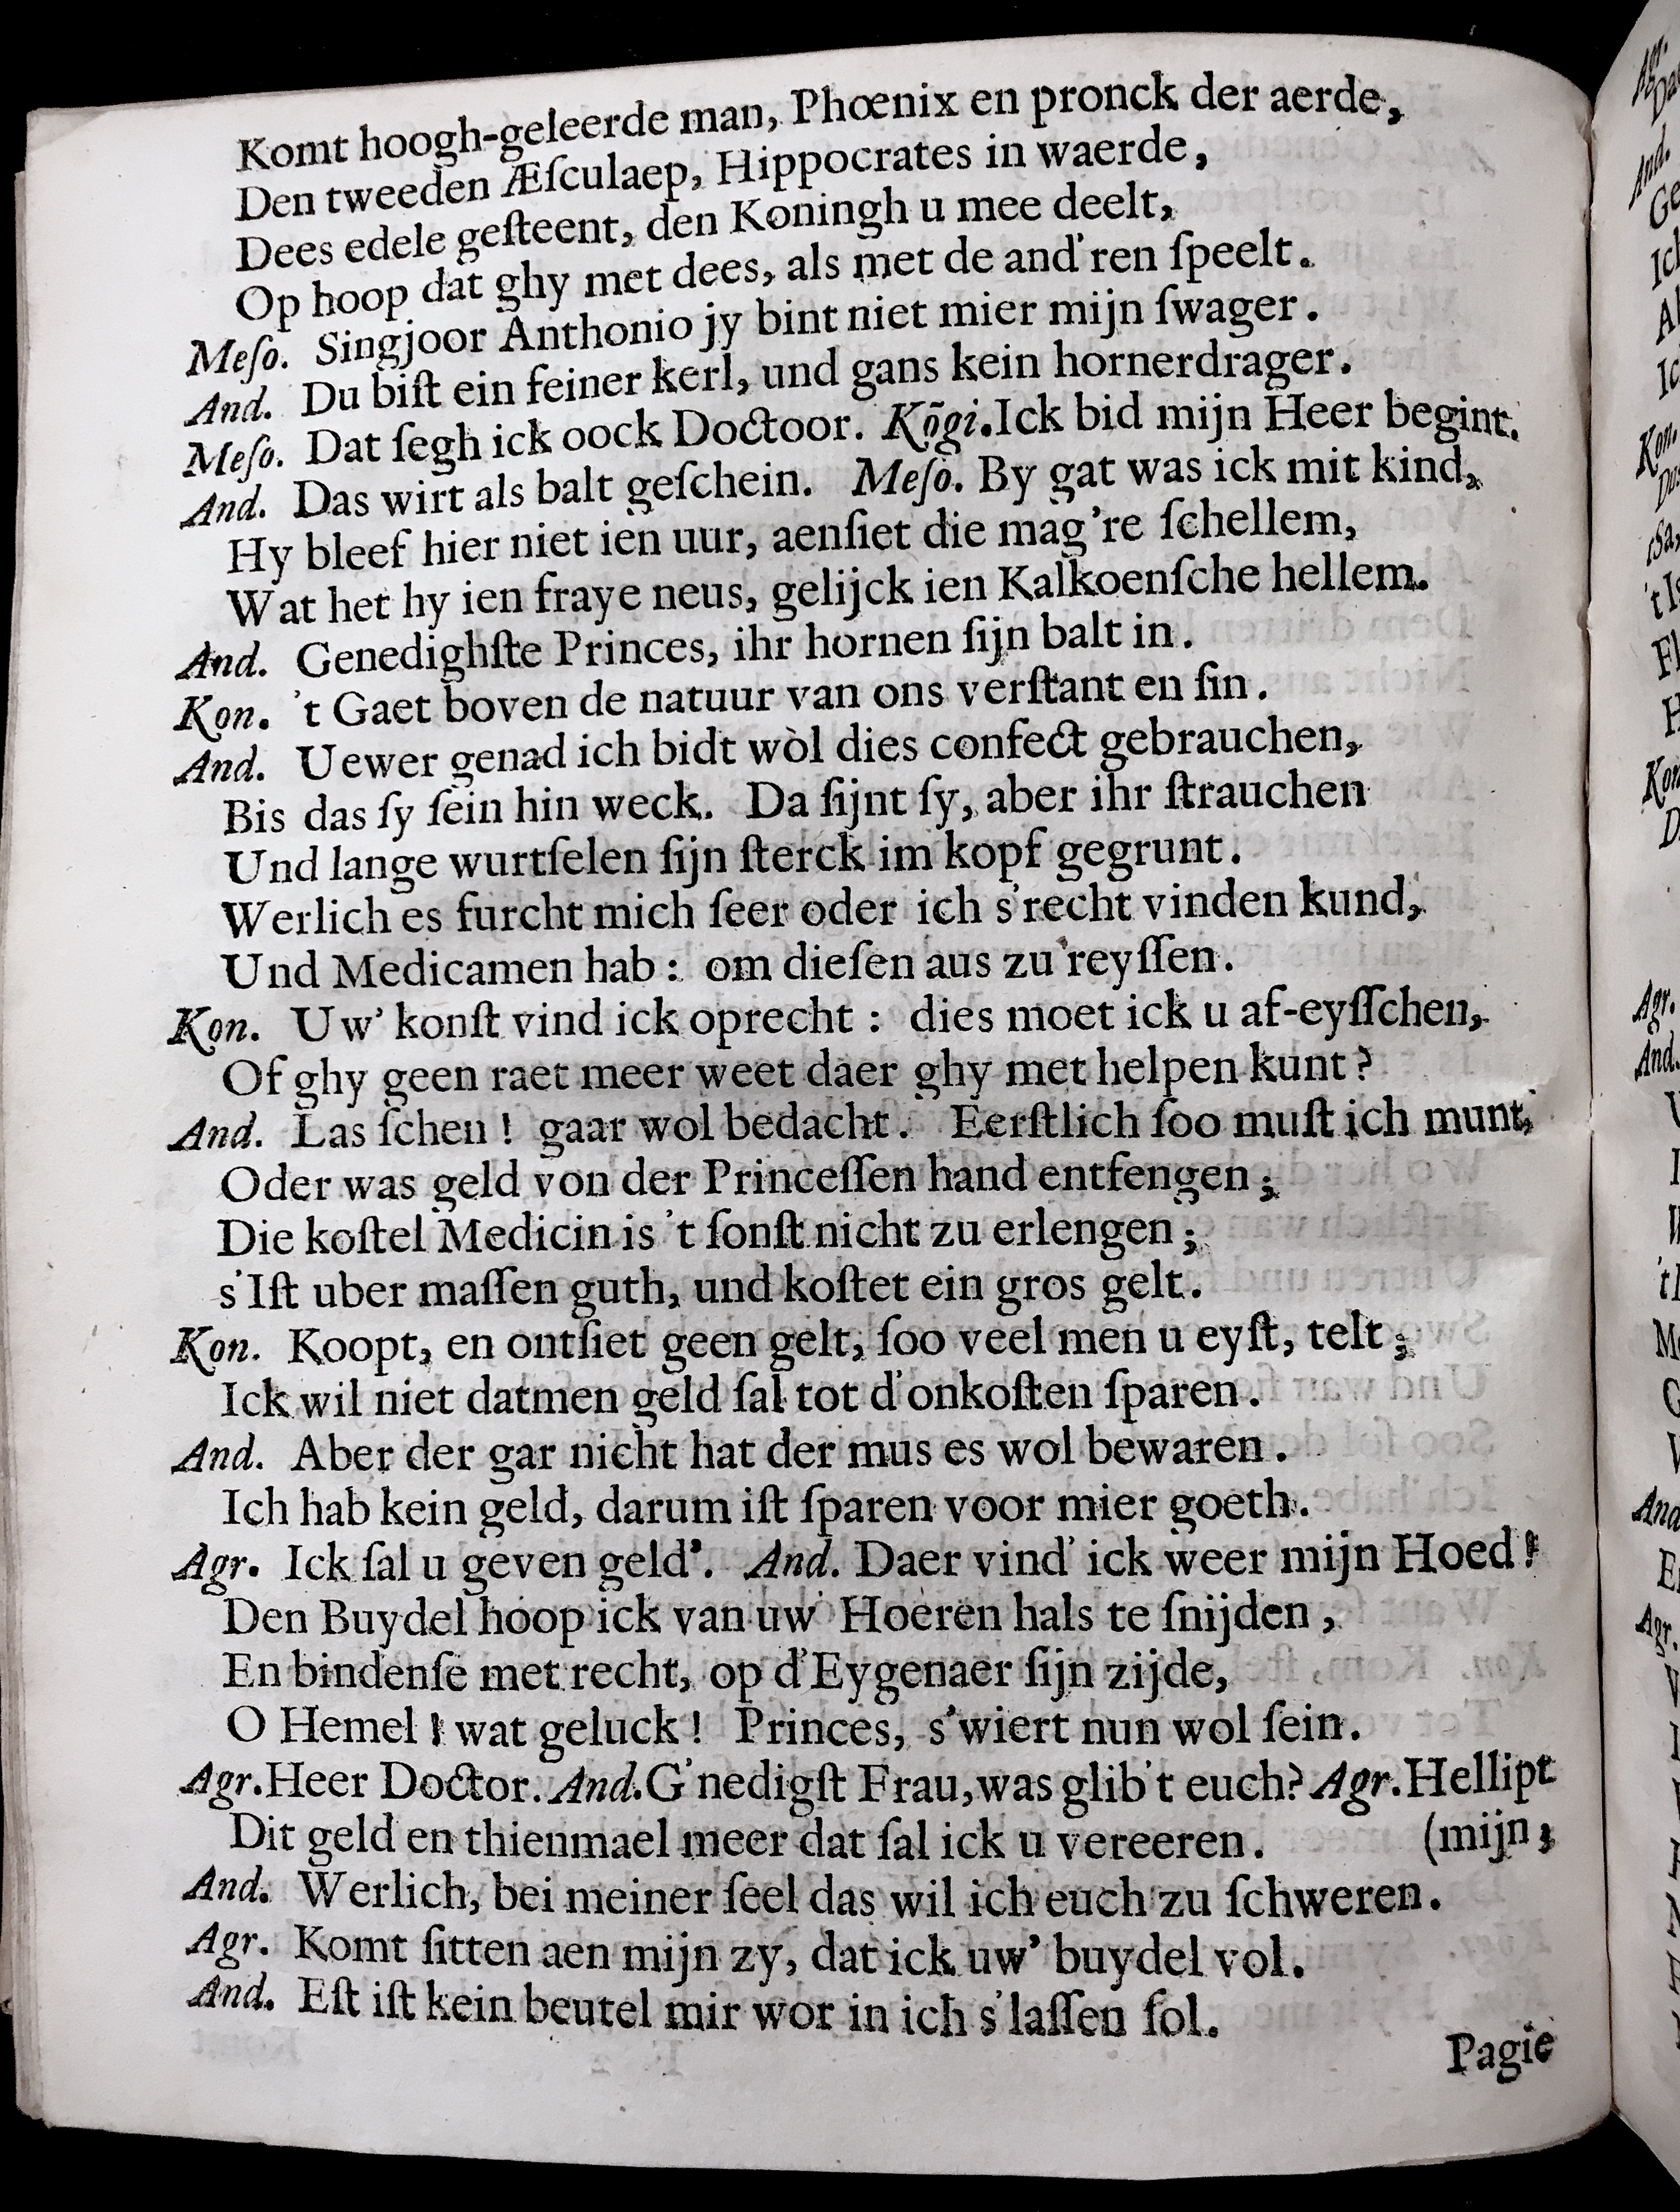 Komt hoogh-geleerde man, Phœnix en pronck der aerde,
Den tweeden Æſculaep, Hippocrates in waerde,
Dees edele geſteent, den Koningh u mee deelt,
Op hoop dat ghy met dees, als met de and'ren ſpeelt.
Meſo. Singjoor Anthonio jy bint niet mier mijn ſwager.
And. Du biſt ein feiner kerl, und gans kein hornerdrager.
Meſo. Dat ſegh ick oock Doctoor. Kōgi. Ick bid mijn Heer begint.
And. Das wirt als balt geſchein. Meſo. By gat was ick mit kind,
Hy bleef hier niet ien uur, aenſiet die mag're ſchellem,
Wat het hy ien fraye neus, gelijck ien Kalkoenſche hellem.
And. Genedighſte Princes, ihr hornen ſijn balt in.
Kon. 't Gaet boven de natuur van ons verſtant en ſin.
And. Uewer genad ich bidt wòl dies confect gebrauchen,
Bis das ſy ſein hin weck. Da ſijnt ſy, aber ihr ſtrauchen
Und lange wurtſelen ſijn ſterck im kopf gegrunt.
Werlich es furcht mich ſeer oder ich s'recht vinden kund,
Und Medicamen hab: om dieſen aus zu reyſſen.
Kon. Uw' konſt vind ick oprecht: dies moet ick u af-eyſſchen,
Of ghy geen raet meer weet daer ghy met helpen kunt?
And. Las ſchen! gaar wol bedacht. Eerſtlich ſoo muſt ich munt,
Oder was geld von der Princeſſen hand entfengen;
Die koſtel Medicin is 't ſonſt nicht zu erlengen;
s'Iſt uber maſſen guth, und koſtet ein gros gelt.
Kon. Koopt, en ontſiet geen gelt, ſoo veel men u eyſt, telt;
Ick wil niet datmen geld ſal tot d'onkoſten ſparen.
And. Aber der gar nicht hat der mus es wol bewaren.
Ich hab kein geld, darum iſt ſparen voor mier goeth.
Agr. Ick ſal u geven geld'. And. Daer vind' ick weer mijn Hoed!
Den Buydel hoop ick van uw' Hoeren hals te ſnijden,
En bindenſe met recht, op d'Eygenaer ſijn zijde,
O Hemel! wat geluck! Princes, s'wiert nun wol ſein.
Agr. Heer Doctor. And. G'nedigſt Frau, was glib't euch? Agr. Hellipt
Dit geld en thienmael meer dat ſal ick u vereeren. (mijn;
And. Werlich, bei meiner ſeel das wil ich euch zu ſchweren.
Agr. Komt ſitten aen mijn zy, dat ick uw' buydel vol.
And. Eſt iſt kein beutel mir wor in ich s'laſſen ſol.
Pagie